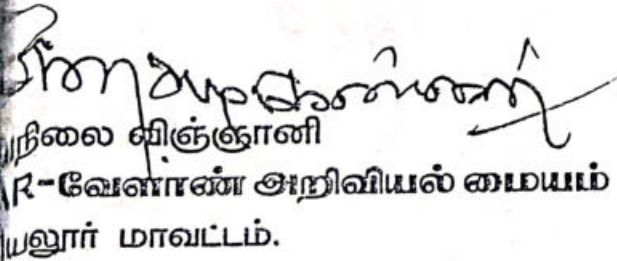 நிலை விஞ்ஞானி
R-வேளாண் அறிவியல் மையம்
யலூர் மாவட்டம்.